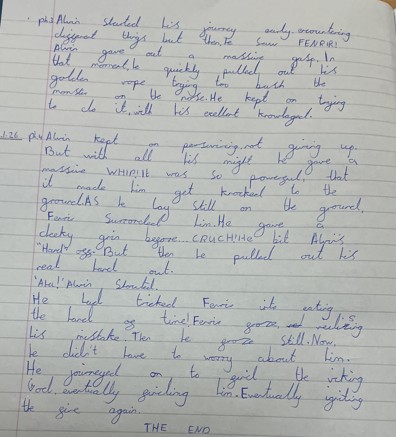 ph3 Alvin started his journey early encountering
different things but then, he saw FENRIR!
Alvin gave out a massive gasp. In
that moment, he quickly pulled out his
golden rope trying to bash the
monster on the nose. He kept on trying
to do it, with his exellent knowlaged.
ph4 Alvin kept on perserviring, not giving up.
But with all his might he gave a
massive WHIP! It was so powerful, that
it made him get knocked to the
ground. AS he lay still on the ground,
Fenrir Surrounded him. He gave a
cheeky grin before... CRUCH! He bit Alvin's
"Hand" off. But then he pulled out his
real hand out.
"Aha!" Alvin Shouted.
He had tricked Fenrir into eating
the hand of time! Fenrir froze, realising
his mistake. Then he froze still. Now,
he didn't have to worry about him.
He journeyed on to find the viking
God, eventually finding him. Eventually igniting
the fire again.
THE END